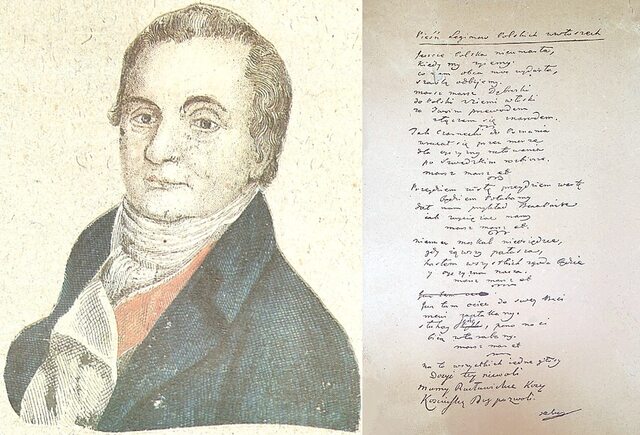 Pieśń Legionów Polskich we Włoszech
Jeszcze Polska nie umarła,
kiedy my żyjemy
co nam obca moc wydarła,
szablą odbijemy.
marsz marsz Dąbrowski
do Polski z ziemi włoski
za Twoim przewodem
złączem się z narodem.
Jak Czarnecki do Poznania
wracał się przez morze
dla ojczyzny ratowania
po szwedzkim rozbiorze.
marsz marsz et
Przejdziem Wisłę przejdziem Wartę
będziem Polakamy
dał nam przykład Bonaparte
jak zwyciężać mamy
marsz marsz et.
niemiec moskal nieosiędzie,
gdy jąwszy pałasza,
hasłem wszystkich zgoda będzie
y ojczyzna nasza.
marsz marsz et
Już tam ociec do swej Basi
mówi zapłakany.
słuchaj jeno, pono nasi
biją w tarabany.
marsz marsz et
na to wszystkich jedne głosy
Dosyć tej niewoli
Mamy Racławickie Kosy
Kościuszkę Bóg pozwoli.